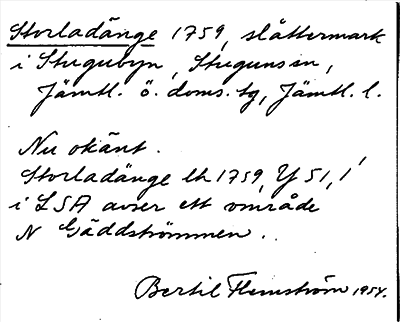 Storladänge 1759, slåttermark
i Stugubyn, Stuguns sn,
Jämtl. ö. doms. tg, Jämtl. l.
Nu okänt.
Storladänge lh 1759, Y 51, 1
i LSA avser ett område
N Gäddströmmen.
Bertil Flemström 1954.